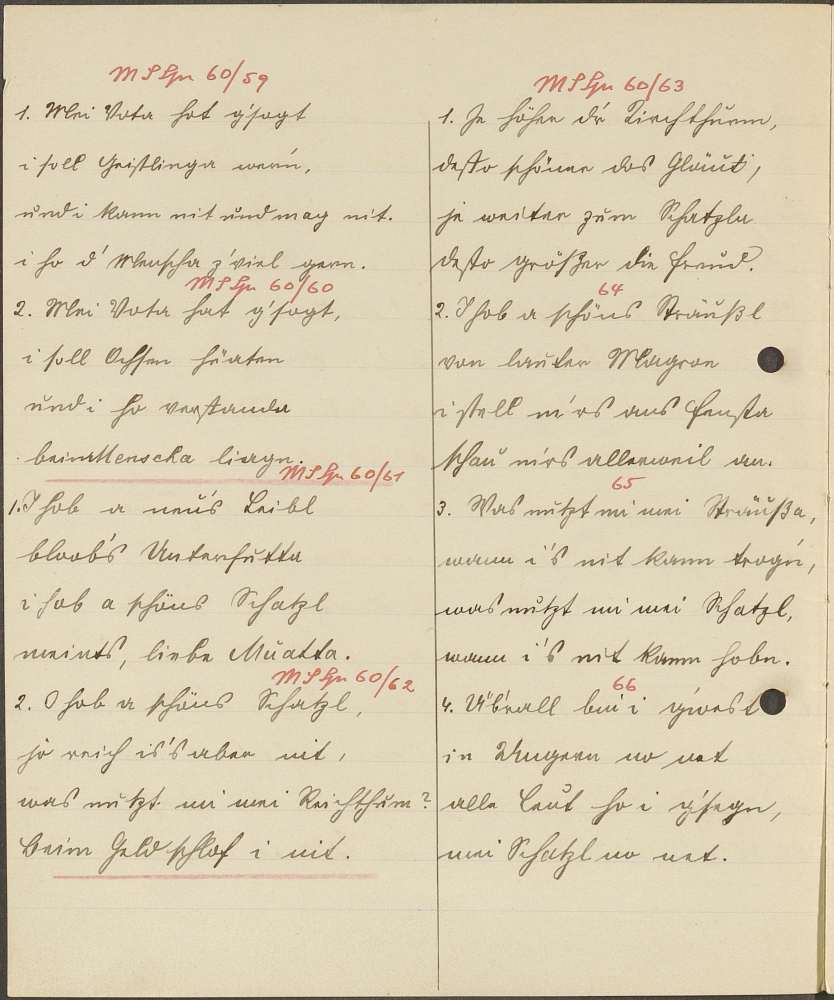 MS Gr 60/59
1. Mei Vota hot g'sogt
i soll Geistlinga wern,
und i kann nit und mag nit.
i ho d' Menscha z'viel gern.
MS Gr 60/60
2. Mei Vota hat g'sogt,
i soll Ochsen hüaten
und i ho verstanda
beim Menscha liagn.
MS Gr 60/61
1. I hob a neu's Leibl
bloob's Unterfutta
i hob a schöns Schatzl
meints, liebe Muatta.
MS Gr 60/62
2. O hob a schöns Schatzl,
jo reich is's aber nit,
was nutzt mi mei Reichthum?
Beim Geld schlof i nit.
MS Gr 60/63
1. Je höher d'r Kirchthurm,
desto schöner das Gläut,
je weiter zum Schatzla
desto größer die Freud.
64
2. I hob a schöns Sträußl
von lauter Magron
i stell m'rs ans Fensta
schau mirs allerweil an.
65
3. Was nutzt mi mei Sträußa,
wann i's nit kann trogn,
was nutzt mi mei Schatzl,
wann i's nit kann hobn.
66
4. Üb'rall bin i gwest
in Ungern no net
alle Leut ho i g'segn,
mei Schatzl no net.